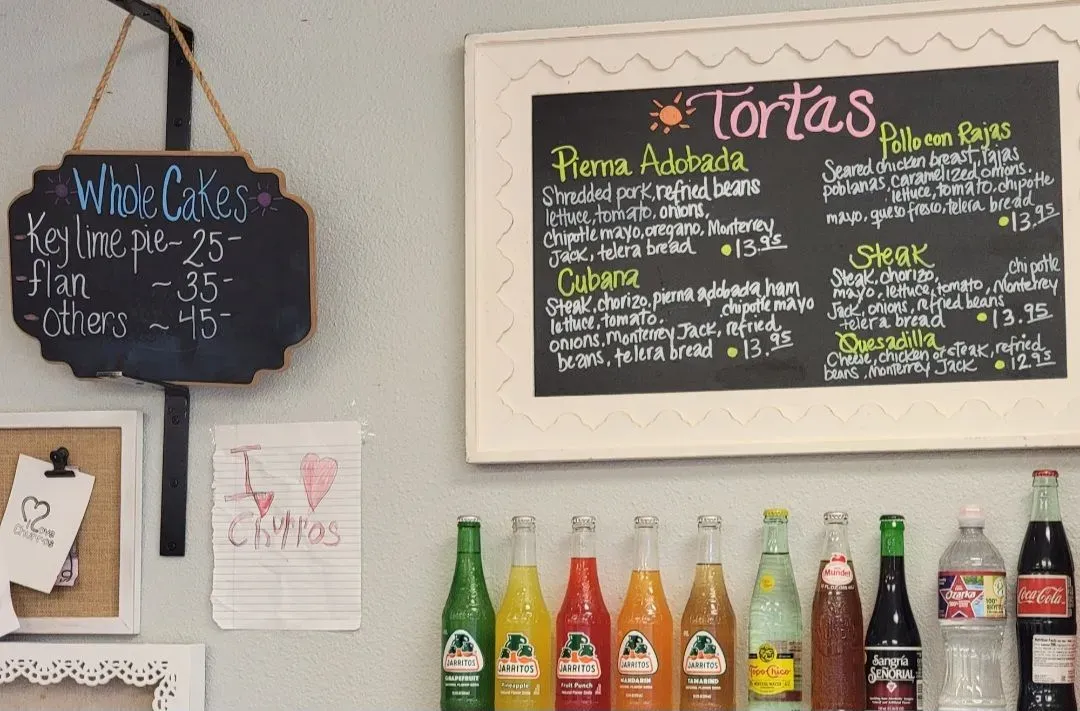 Whole Cakes
Key lime pie ~ 25-
flan ~ 35-
Others ~ 45-
Tortas
Pierna Adobada
Shredded pork, refried beans
lettuce, tomato, onions,
Chipotle mayo, oregano, Monterrey
Jack, telera bread 13.95
Cubana
Steak, chorizo, pierna adobada, ham
lettuce, tomato, chipotle mayo
onions, Monterrey Jack, refried
beans, telera bread 13.95
Pollo con Rajas
Seared chicken breast, rajas
poblanas, caramelized onions.
lettuce, tomato, chipotle
mayo, queso fresco, telera bread
13.95
Steak
Steak, chorizo, chipotle
mayo, lettuce, tomato, Monterrey
Jack, onions, refried beans
telera bread 13.95
Quesadilla
Cheese, chicken or steak, refried
beans, Monterrey Jack 12.95
I
Churros
I Love
Churros
JARRITOS
GRAPEFRUIT
JARRITOS
Pineapple
JARRITOS
Fruit Punch
JARRITOS
MANDARIN
JARRITOS
TAMARIND
Topo Chico
Mundet
Sangría
SEÑORIAL
Ozarka
100%
Coca-Cola
Nutrition Facts